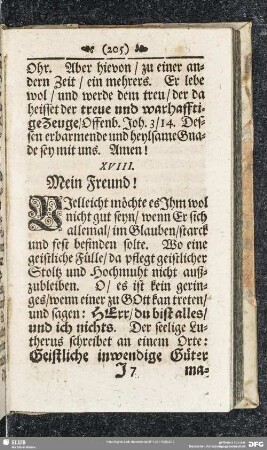 (205)
Ohr. Aber hievon / zu einer an-
dern Zeit / ein mehrers. Er lebe
wol / und werde dem treu / der da
heisset der treue und warhaffti-
ge Zeuge / Offenb. Joh. 3/14. Des-
sen erbarmende und heylsame Gna-
de sey mit uns. Amen!
XVIII.
Mein Freund!
VJelleicht möchte es Ihm wol
nicht gut seyn / wenn Er sich
allemal / im Glauben / starck
und fest befinden solte. Wo eine
geistliche Fülle / da pflegt geistlicher
Stoltz und Hochmuht nicht auß-
zubleiben. O / es ist kein gerin-
ges / wenn einer zu GOtt kan treten /
und sagen: HErr / du bist alles /
und ich nichts. Der seelige Lu-
therus schreibet an einem Orte:
Geistliche inwendige Güter
J 7
ma-
SLUB
DFG